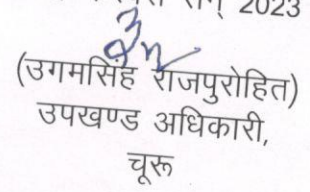 सन् 2023
(उगमसिंह राजपुरोहित)
उपखण्ड अधिकारी,
चूरू